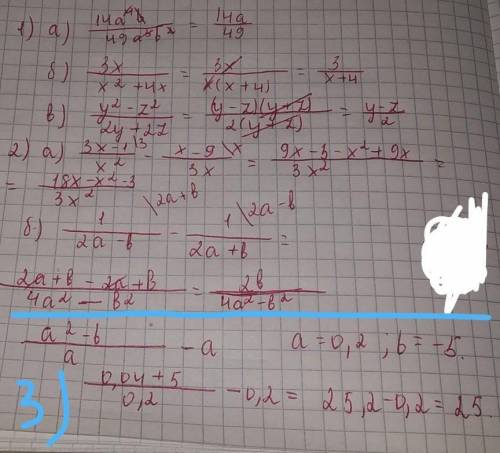 1) а) 14a⁴b / 49a³b² = 14a / 49
б) 3x / x² + 4x = 3x / x(x+4) = 3 / x+4
в) y² - z² / 2y + 2z = (y-z)(y+z) / 2(y+z) = y-z / 2
2) а) 3x-1\3 / x² - x-9\x / 3x = 9x-3-x²+9x / 3x² =
= 18x-x²-3 / 3x²
б) 1\2a+b / 2a-b - 1\2a-b / 2a+b =
2a+b-2a+b / 4a²-b² = 2b / 4a²-b²
a²-b / a - a a=0,2 ; b=-5.
3) 0,04+5 / 0,2 - 0,2 = 25,2-0,2=25